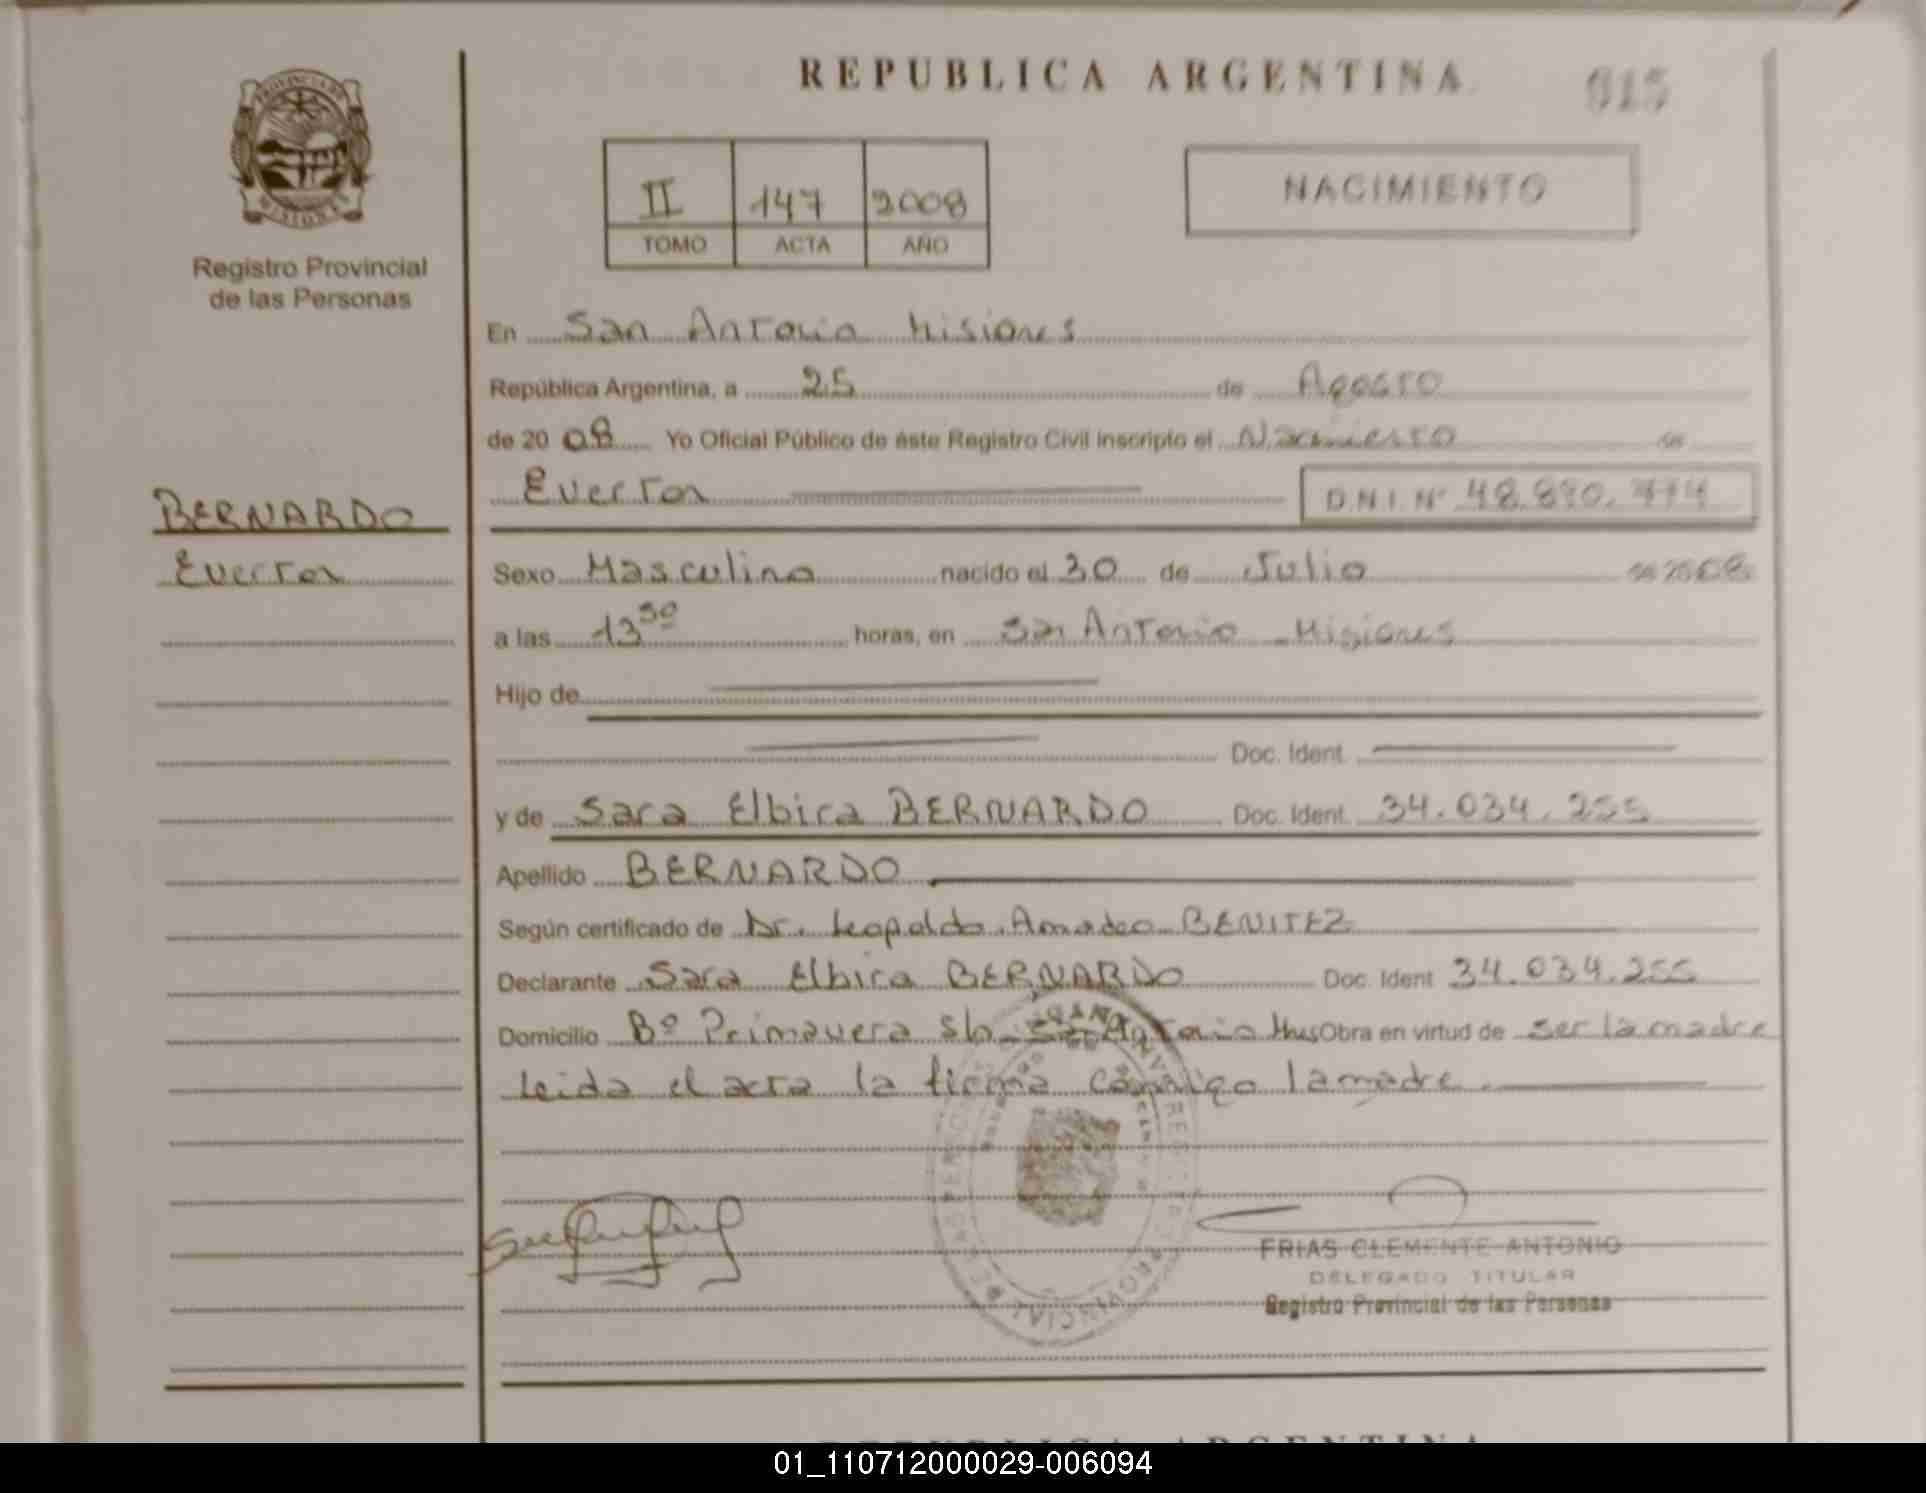 REPUBLICA ARGENTINA
015
PROVINCIA DE
MISIONES
Registro Provincial
de las Personas
II 147 2008
TOMO ACTA AÑO
NACIMIENTO
En San Antonio Misiones
República Argentina, a 25 de Agosto
de 20 08 Yo Oficial Público de éste Registro Civil inscripto el Nacimiento de
Everton
D.N.I. Nº 48.890.
BERNARDO
Everton
Sexo Masculino nacido el 30 de Julio de 2008
a las 13 30 horas, en San Antonio - Misiones
Hijo de
Doc. Ident.
y de Sara Elbira BERNARDO Doc. Ident. 34.034.255
Apellido BERNARDO
Según certificado de Dr. Leopoldo Amadeo BENITEZ
Declarante Sara Elbira BERNARDO Doc. Ident 34.034.255
Domicilio Bº Primavera s/n San Antonio Mnes Obra en virtud de ser la madre
Leida el acta la firma conmigo la madre.
FRIAS CLEMENTE ANTONIO
DELEGADO TITULAR
Registro Provincial de las Personas
REPUBLICA ARGENTINA
01_110712000029-006094